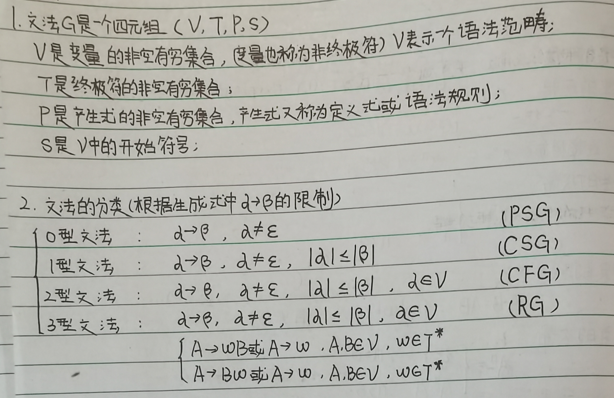 1.文法G是一个四元组(V,T,P,S)
V是变量的非空有穷集合,(变量也称为非终极符)V表示个语法范畴;
T是终极符的非空有穷集合;
P是产生式的非空有穷集合,产生式又称为定义式或语法规则;
S是V中的开始符号;
2.文法的分类(根据生成式中α→β的限制)
0型文法: α→β,α≠ε (PSG)
1型文法: α→β,α≠ε,|α|≤|β| (CSG)
2型文法: α→β,α≠ε,|α|≤|β|,α∈V (CFG)
3型文法: α→β,α≠ε,|α|≤|β|,α∈V (RG)
A→wB或A→w,A,B∈V,w∈T*
A→Bw或A→w,A,B∈V,w∈T*